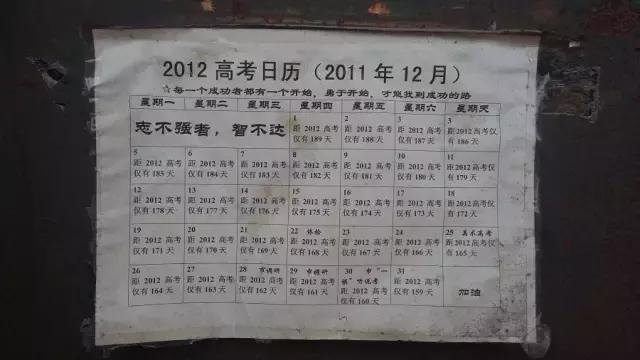 2012 高考日历（2011 年 12 月）
☆每一个成功者都有一个开始，勇于开始，才能找到成功的路
星期一 星期二 星期三 星期四 星期五 星期六 星期天
志不强者，智不达
1 距 2012 高考仅有 189 天
2 距 2012 高考仅有 188 天
3 距 2012 高考仅有 187 天
3 距 2012 高考仅有 186 天
5 距 2012 高考仅有 185 天
6 距 2012 高考仅有 184 天
7 距 2012 高考仅有 183 天
8 距 2012 高考仅有 182 天
9 距 2012 高考仅有 181 天
10 距 2012 高考仅有 180 天
11 距 2012 高考仅有 179 天
12 距 2012 高考仅有 178 天
13 距 2012 高考仅有 177 天
14 距 2012 高考仅有 176 天
15 距 2012 高考仅有 175 天
16 距 2012 高考仅有 174 天
17 距 2012 高考仅有 173 天
18 距 2012 高考仅有 172 天
19 距 2012 高考仅有 171 天
20 距 2012 高考仅有 170 天
21 距 2012 高考仅有 169 天
22 体检 距 2012 高考仅有 168 天
23 距 2012 高考仅有 167 天
24 距 2012 高考仅有 166 天
25 美术高考 距 2012 高考仅有 165 天
26 距 2012 高考仅有 164 天
27 距 2012 高考仅有 163 天
28 市调研 距 2012 高考仅有 162 天
29 市调研 距 2012 高考仅有 161 天
30 市“一模”听说考 距 2012 高考仅有 160 天
31 距 2012 高考仅有 159 天
加油